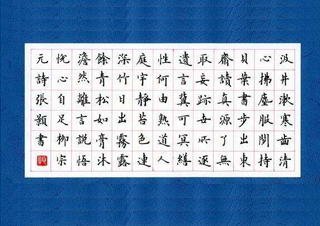 汲井漱寒齒清
心拂塵服閒持
貝葉書步出東
齋讀真源了無
取妄跡世所逐
遺言冀可冥繕
性何由熟道人
庭宇靜苔色連
深竹日出霧露
餘青松如膏沐
澹然離言說悟
悅心自足柳宗
元詩張書